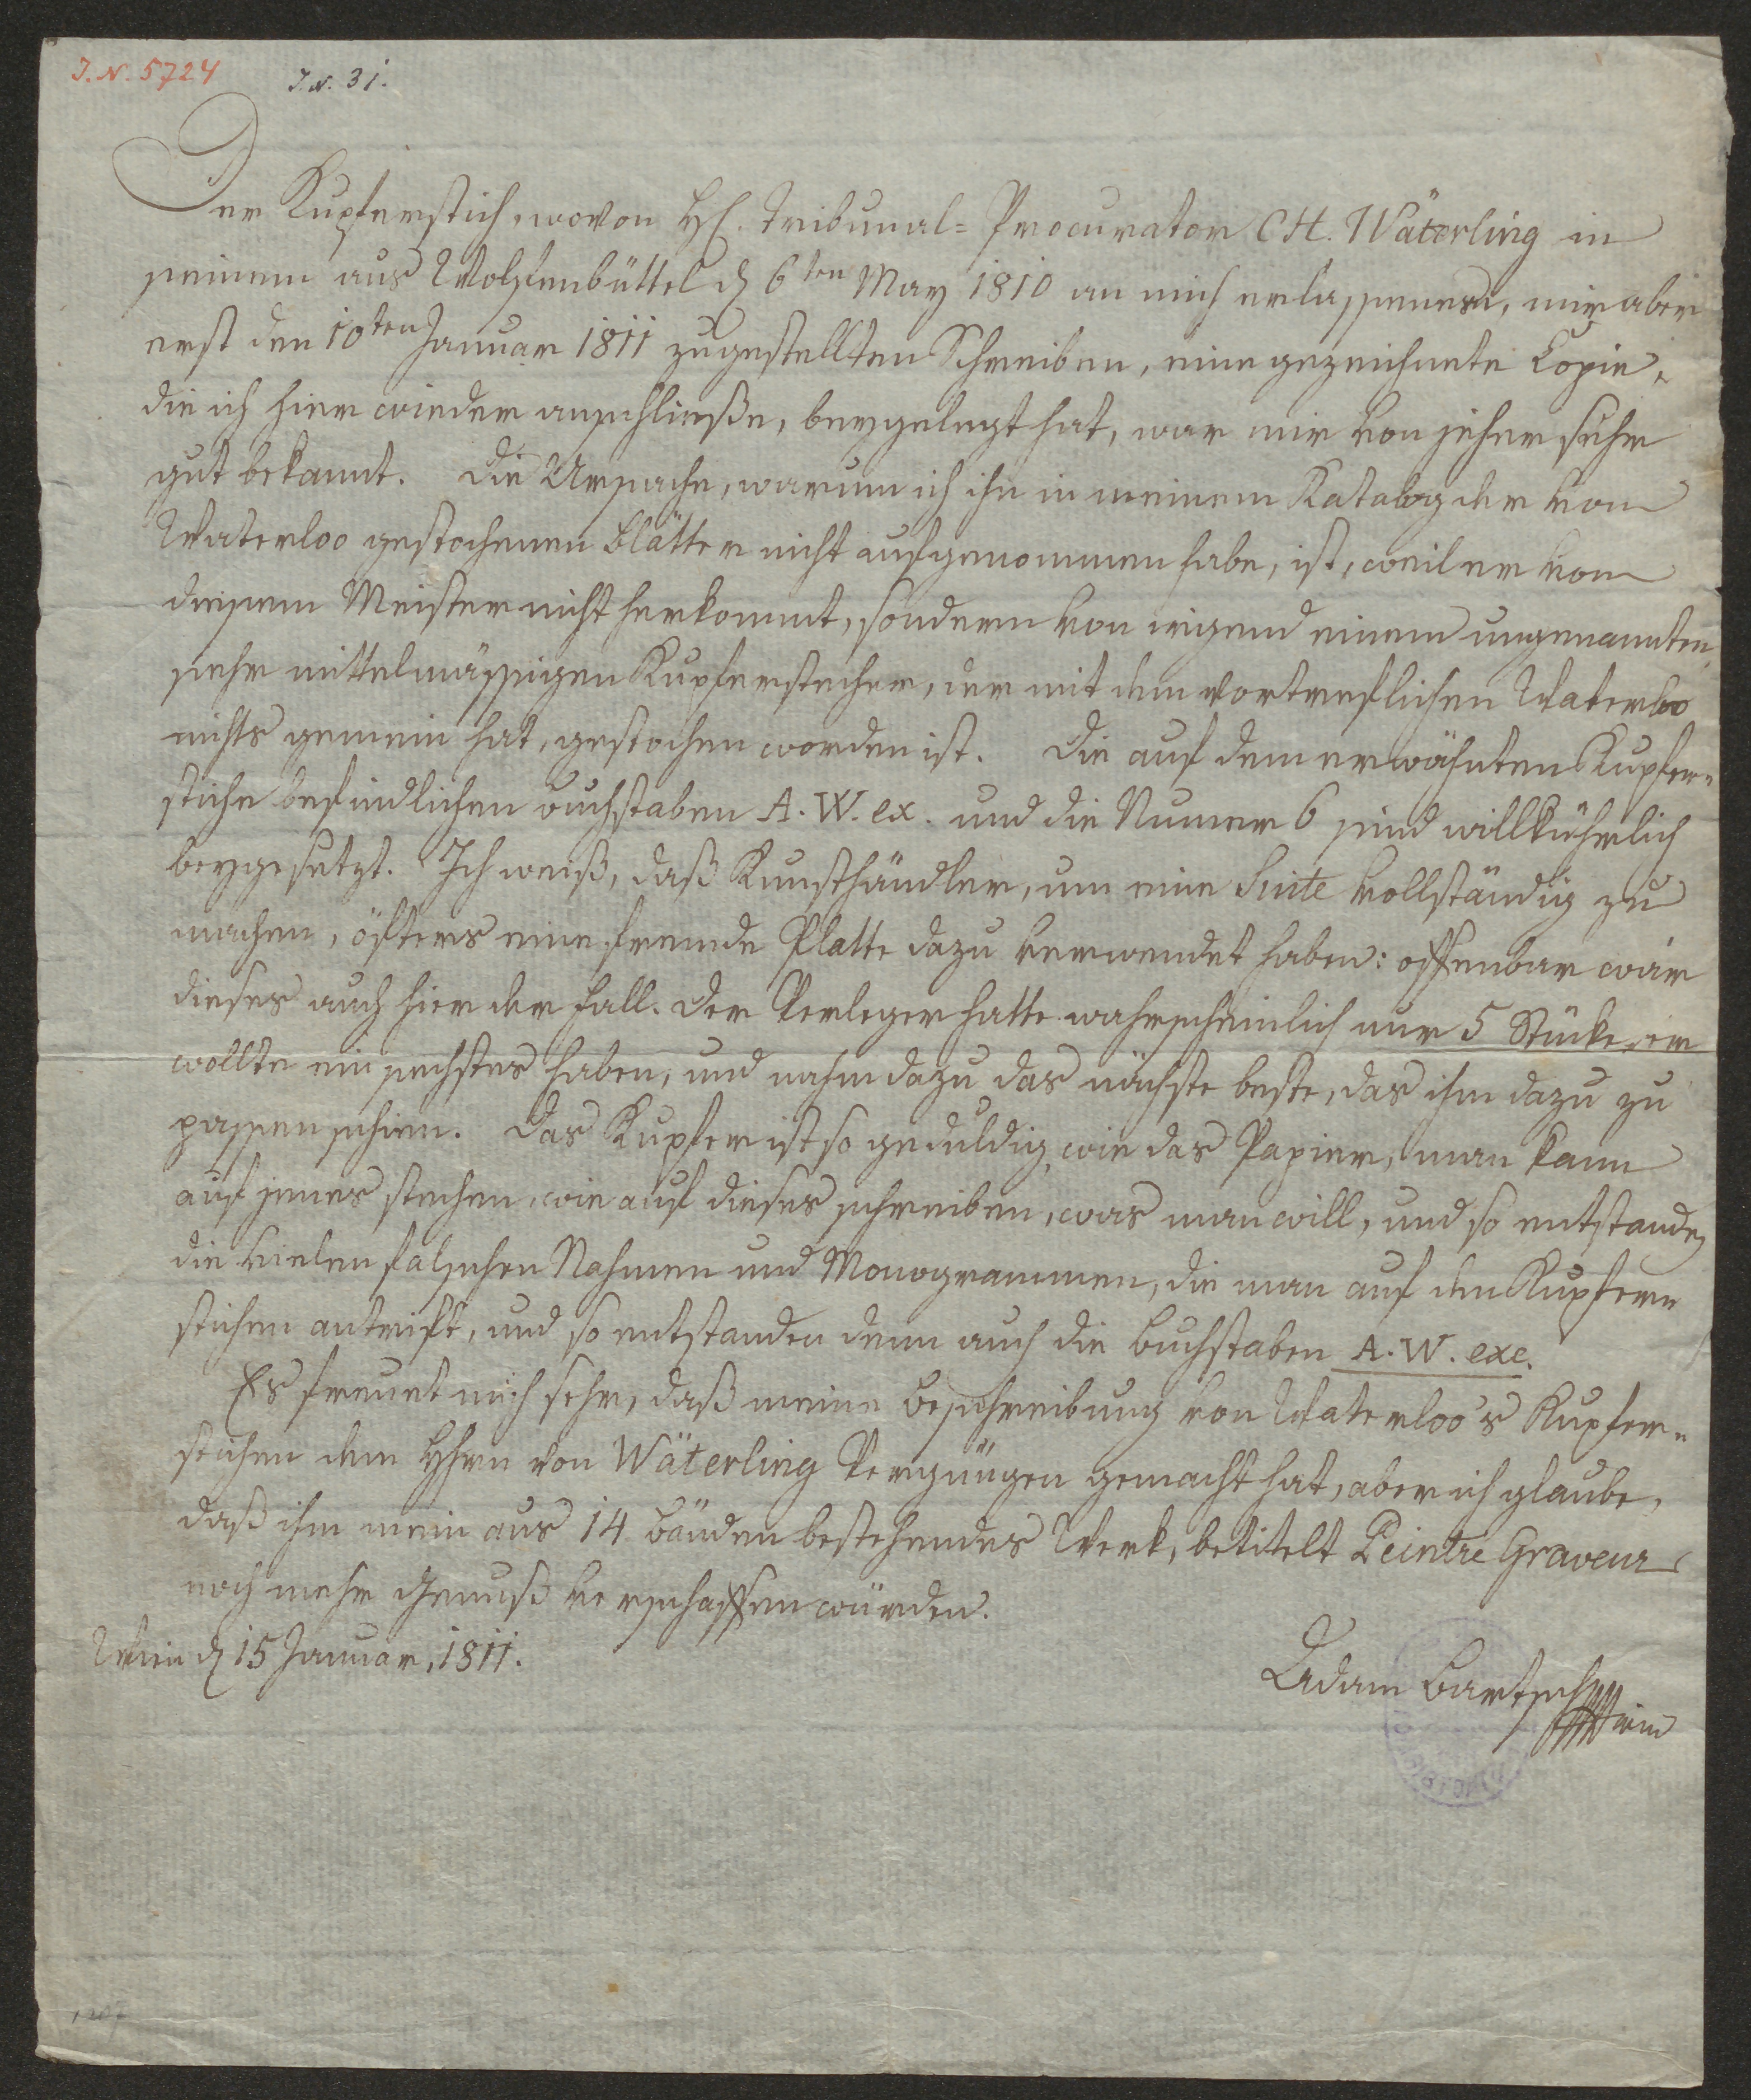 J. N. 5724
J. N. 31.
Der Kupferstich, wovon H. Tribunal= Procurator CH. Wäterling in
seinem aus Wolfenbüttel d 6ten May 1810 an mich erlassenen, mir aber
erst den 10ten Januar 1811 zugestellten Schreiben, eine gezeichnete Copie,
die ich hier wieder anschließe, beygelegt hat, war mir von jeher sehr
gut bekannt. Die Ursache, warum ich ihn in meinem Katalog der von
Waterloo gestochenen Blätter nicht aufgenommen habe, ist, weil er von
diesem Meister nicht herkommt, sondern von irgend einem ungenannten,
sehr mittelmässigen Kupferstecher, der mit dem vortreflichen Waterloo
nichts gemein hat, gestochen worden ist. Die auf dem erwähnten Kupfer=
stiche befindlichen Buchstaben A. W. ex. und die Numer 6 sind willkührlich
beygesetzt. Ich weiß, daß Kunsthändler, um eine Suite vollständig zu
machen, öfters eine fremde Platte dazu verwendet haben: offenbar war
dieses auch hier der Fall. Der Verleger hatte wahrscheinlich nur 5 Stücke, er
wollte ein sechstes haben, und nahm dazu das nächste beste, das ihm dazu zu
passen schien. Das Kupfer ist so geduldig, wie das Papier, man kann
auf jenes stechen, wie auf dieses schreiben, was man will, und so entstanden
die vielen falschen Nahmen und Monogrammen, die man auf den Kupfern
stichen antrift, und so entstanden denn auch die Buchstaben A. W. exc.
Es freuet mich sehr, daß meine Beschreibung von Waterloo's Kupfer=
stichen dem Hhrn von Wäterling Vergnügen gemacht hat, aber ich glaube,
daß ihm mein aus 14 Bänden bestehendes Werk, betitelt Peintre Graveur
noch mehr Genuß verschaffen würden.
Wien d 15 Januar, 1811.
Adam Bartsch